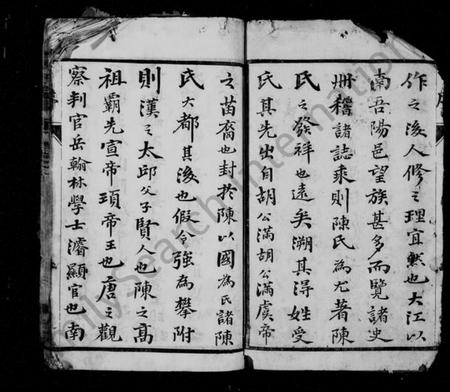 作之後人修之理宜然也大江以
南吾陽邑望族甚多而覽諸史
冊稽諸誌乘則陳氏為尤著陳
氏之發祥也遠矣溯其得姓受
氏其先出自胡公滿胡公滿虞帝
之苗裔也封於陳以國為氏諸陳
氏大都其後也假令強為攀附
則漢之太邱父子賢人也陳之高
祖霸先宣帝頊帝王也唐之觀
察判官岳翰林學士濬顯官也南